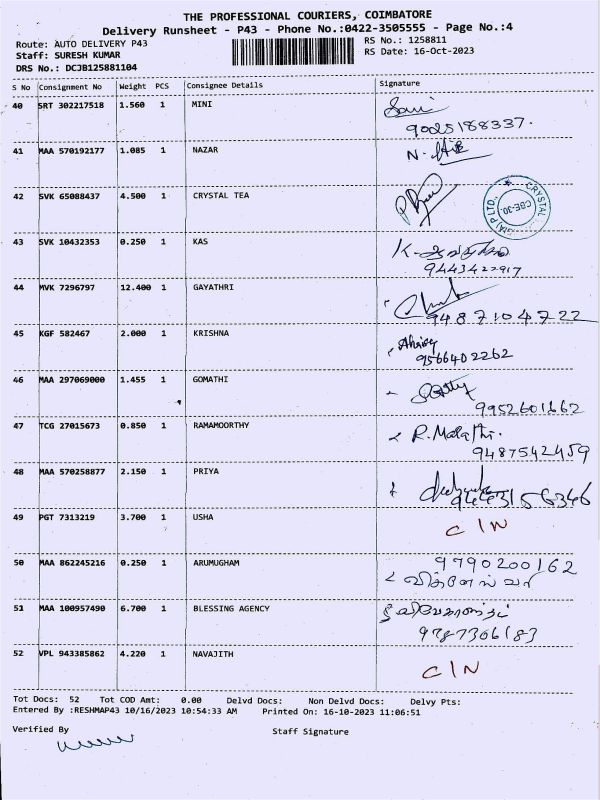 THE PROFESSIONAL COURIERS, COIMBATORE
Delivery Runsheet - P43 - Phone No.:0422-3505555 - Page No.:4
Route: AUTO DELIVERY P43 RS No.: 1258811
Staff: SURESH KUMAR RS Date: 16-Oct-2023
DRS No.: DCJB125881104
S No Consignment No Weight PCS Consignee Details Signature
40 SRT 302217518 1.560 1 MINI
9025188337.
41 MAA 570192177 1.085 1 NAZAR
42 SVK 65088437 4.500 1 CRYSTAL TEA
CRYSTAL
CBE-30.
P LTD.
43 SVK 10432353 0.250 1 KAS
9443422917
44 MVK 7296797 12.400 1 GAYATHRI
9487104722
45 KGF 582467 2.000 1 KRISHNA
9566402262
46 MAA 297069000 1.455 1 GOMATHI
9952601662
47 TCG 27015673 0.850 1 RAMAMOORTHY
R. Malathi.
9487542459
48 MAA 570258877 2.150 1 PRIYA
49 PGT 7313219 3.700 1 USHA
C/N
50 MAA 862245216 0.250 1 ARUMUGHAM
9790200162
51 MAA 100957490 6.700 1 BLESSING AGENCY
9787306183
52 VPL 943385862 4.220 1 NAVAJITH
C/N
Tot Docs: 52 Tot COD Amt: 0.00 Delvd Docs: Non Delvd Docs: Delvy Pts:
Entered By :RESHMAP43 10/16/2023 10:54:33 AM Printed On: 16-10-2023 11:06:51
Verified By Staff Signature